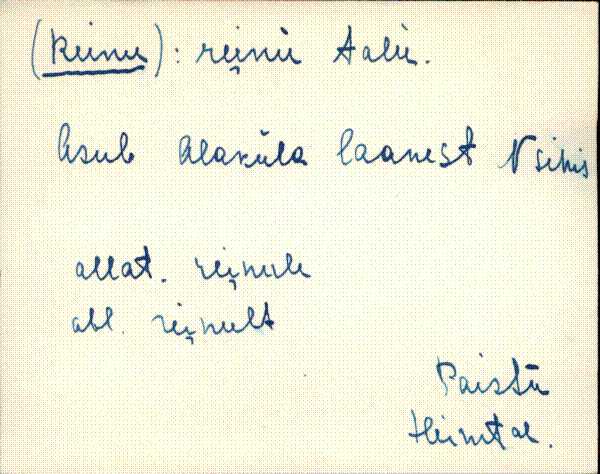 (Reinu): reiņu talu.
Asub Alaküla laanest N sihis
allat. reiņule
abl. reiņult
Paistu
Heimtal.